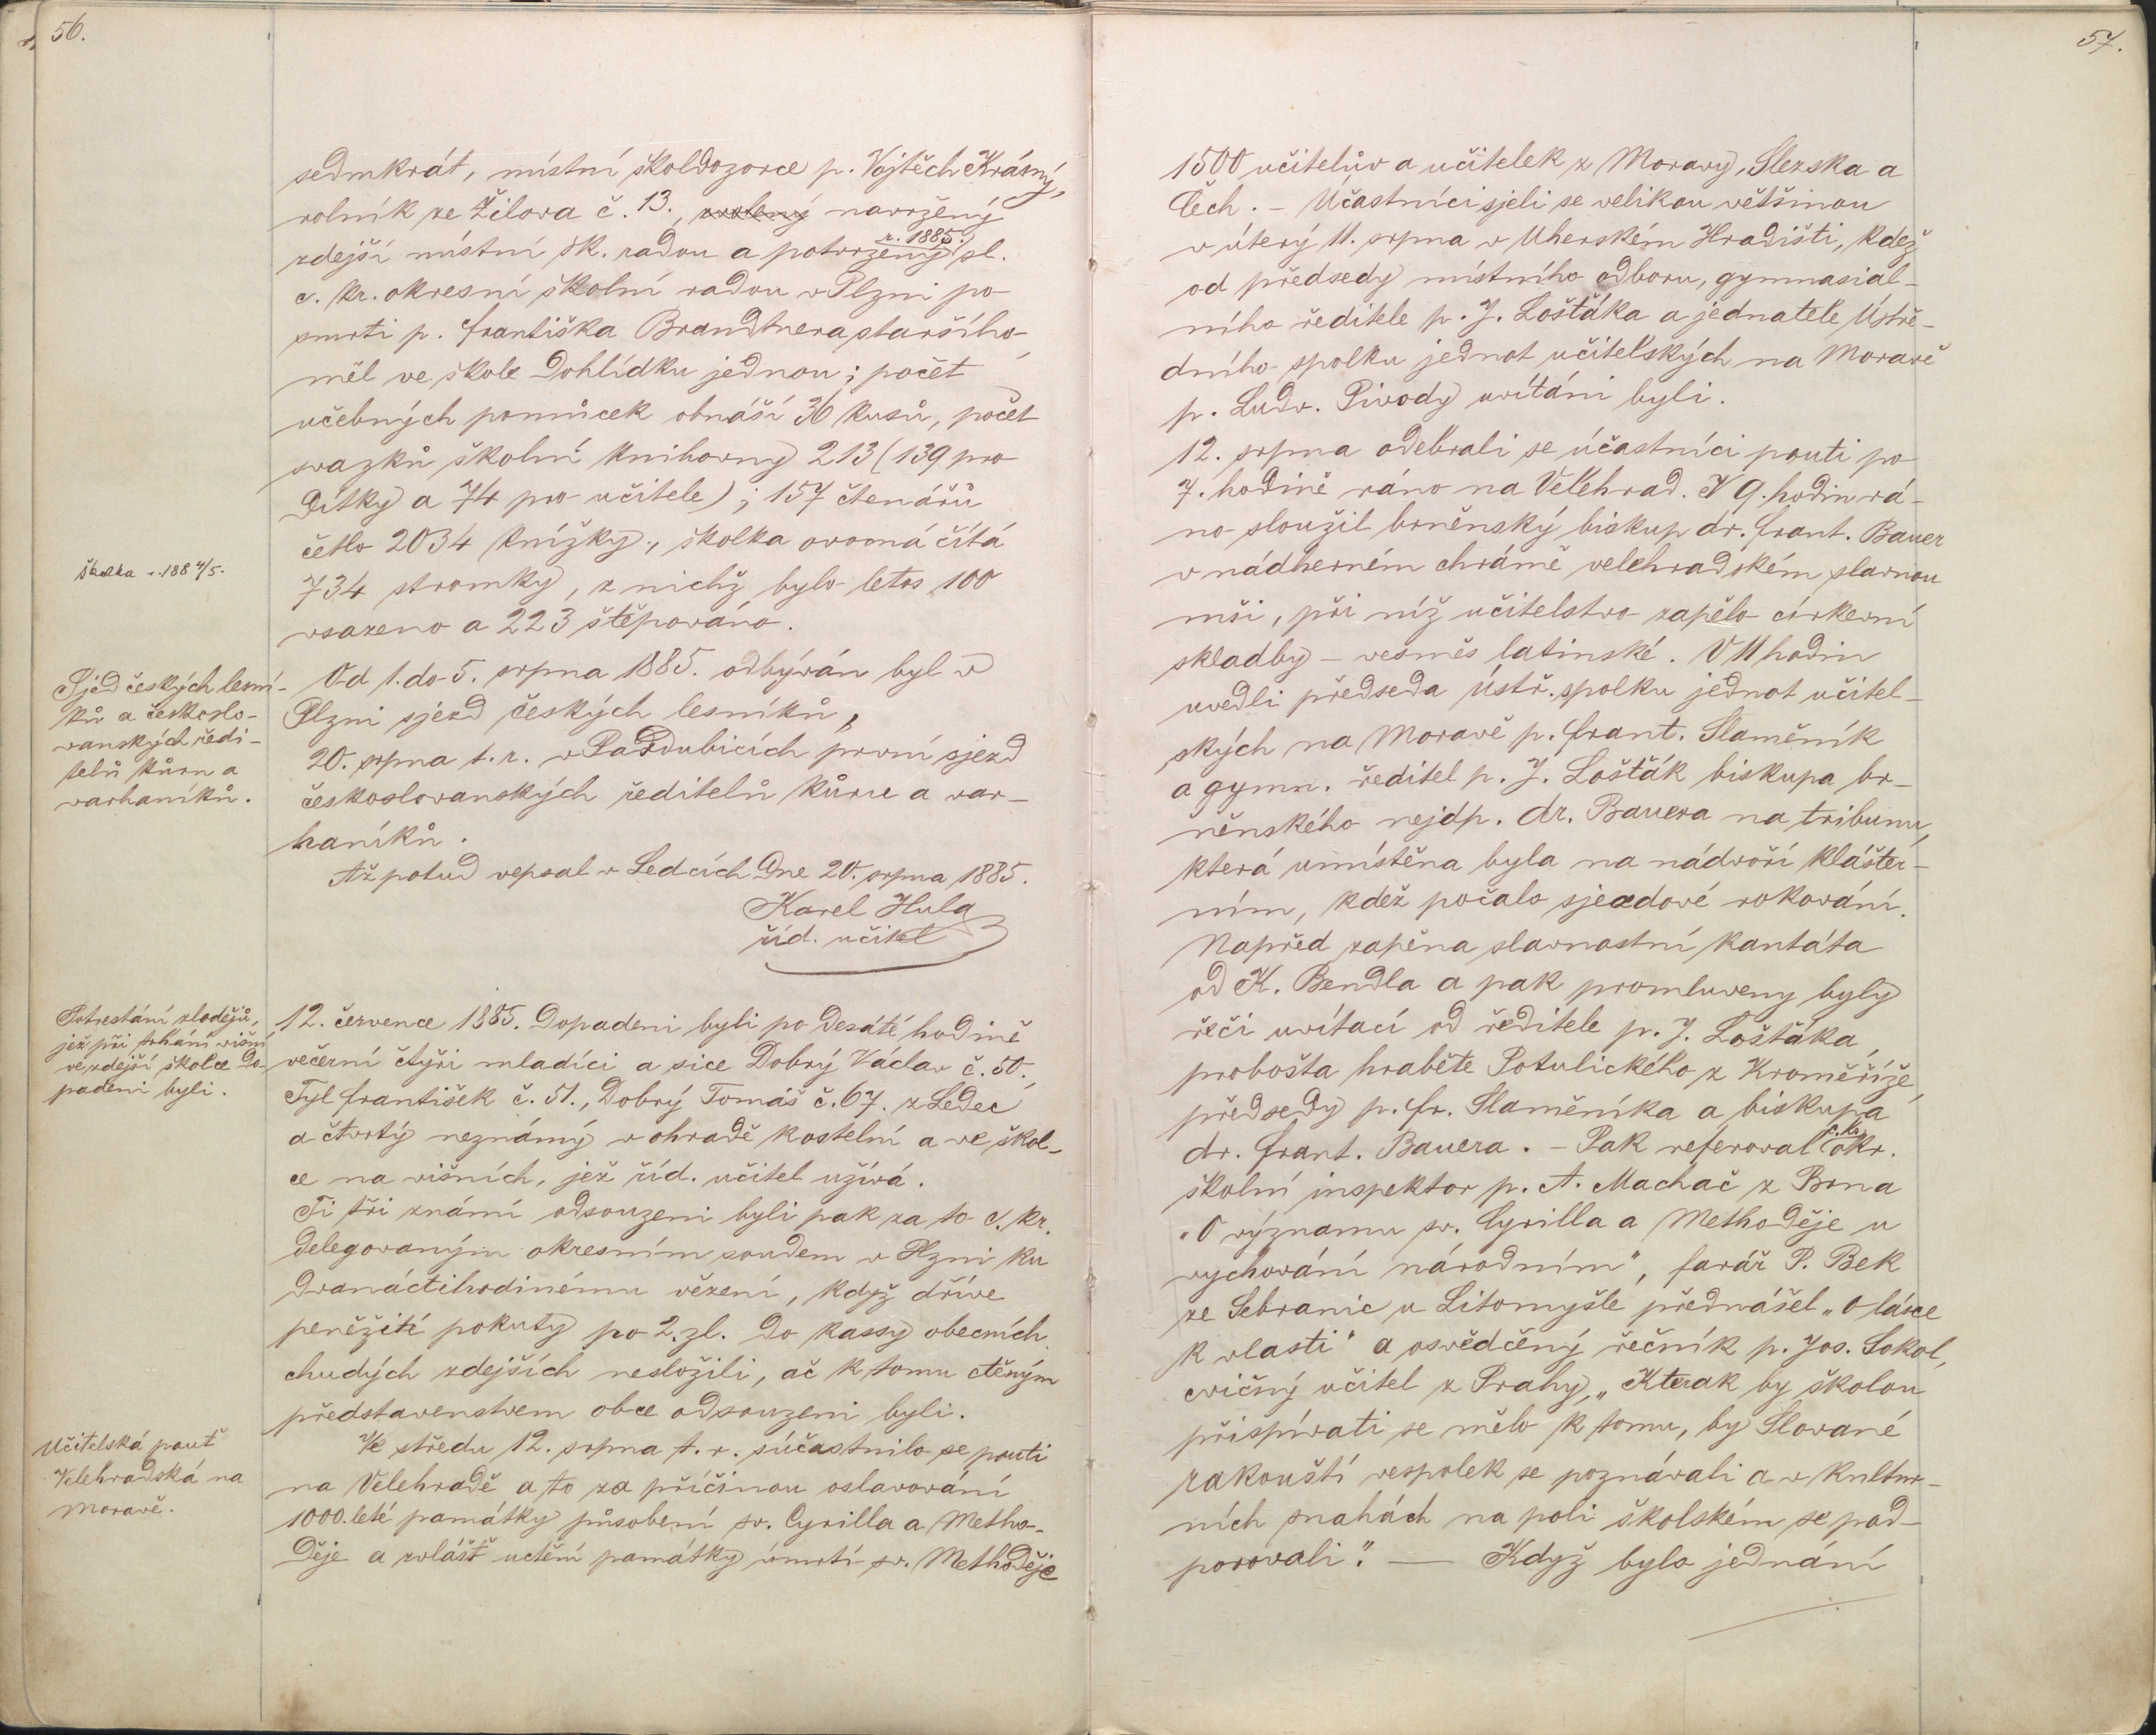 56.
sedmkrát, místní školdozorce p. Vojtěch Krásný,
rolník ze Žilova č. 13., zvolený navržený
r. 1885.
zdejší místní šk. radou a potvrzený sl.
c. kr. okresní školní radou v Plzni po
smrti p. Františka Brandtnera staršího,
měl ve škole dohlídku jednou; počet
učebných pomůcek obnáší 36 kusů, počet
svazků školní knihovny 213 (139 pro
dítky a 74 pro učitele); 157 čtenářů
četlo 2034 knížky., školka ovocná čítá
Školka r. 188 4/5.
734 stromky, z nichž bylo letos 100
vsazeno a 223 štěpováno.
Sjezd českých lesní-
ků a českoslo-
vanských ředi-
telů kůru a
varhaníků.
Od 1. do 5. srpna 1885. odbýván byl v
Plzni sjezd českých lesníků,
20. srpna t. r. v Pardubicích první sjezd
českoslovanských ředitelů kůru a var-
haníků.
Až potud vepsal v Ledcích dne 20. srpna 1885.
Karel Hula
říd. učitel
Potrestání zlodějů,
jež při trhání višní
ve zdejší školce do-
padeni byli.
12. července 1885. Dopadeni byli po desáté hodině
večerní čtyři mladíci a sice Dobrý Václav č. 50.,
Tyl František č. 51., Dobrý Tomáš č. 67. z Ledec
a čtvrtý neznámý v ohradě kostelní a ve škol-
ce na višních, jež říd. učitel užívá.
Ti tři známí odsouzeni byli pak za to c. kr.
delegovaným okresním soudem v Plzni ku
dvanáctihodinému vězení, když dříve
peněžité pokuty po 2. zl. do kassy obecních
chudých zdejších nesložili, ač k tomu ctěným
představenstvem obce odsouzeni byli.
Učitelská pouť
Velehradská na
Moravě.
Ve středu 12. srpna t. r. súčastnilo se pouti
na Velehradě a to za příčinou oslavování
1000.leté památky působení sv. Cyrilla a Metho-
děje a zvlášť uctění památky úmrtí sv. Methoděje
57.
1500 učitelův a učitelek z Moravy, Slezska a
Čech. – Účastníci sjeli se velikou většinou
v úterý 11. srpna v Uherském Hradišti, kdež
od předsedy místního odboru, gymnasial-
ního ředitele p. J. Lošťáka a jednatele Ústře-
dního spolku jednot učitelských na Moravě
p. Ludv. Pivody uvítáni byli.
12. srpna odebrali se účastníci pouti po
7. hodině ráno na Velehrad. V 9. hodin rá-
no sloužil brněnský biskup dr. Frant. Bauer
v nádherném chrámě velehradském slavnou
mši, při níž učitelstvo zapělo církevní
skladby – vesměs latinské. V 11 hodin
uvedli předseda ústř. spolku jednot učitel-
ských na Moravě p. Frant. Slaměník
a gymn. ředitel p. J. Lošťák biskupa br-
něnského nejdp. dr. Bauera na tribunu,
která umístěna byla na nádvoří klášter-
ním, kdež počalo sjezdové rokování.
Napřed zapěna slavnostní kantáta
od K. Bendla a pak promluveny byly
řeči uvítací od ředitele p. J. Lošťáka,
probošta hraběte Potulického z Kroměříže,
předsedy p. Fr. Slaměníka a biskupa
c. k.
dr. Frant. Bauera. – Pak referoval okr.
školní inspektor p. A. Machač z Brna
„O významu sv. Cyrilla a Methoděje u
vychování národním", farář P. Bek
ze Sebranic u Litomyšle přednášel „O lásce
k vlasti" a osvědčený řečník p. Jos. Sokol,
cvičný učitel z Prahy, „Kterak by školou
přispívati se mělo k tomu, by Slované
rakouští vespolek se poznávali a v kultur-
ních snahách na poli školském se pod-
porovali". — Když bylo jednání